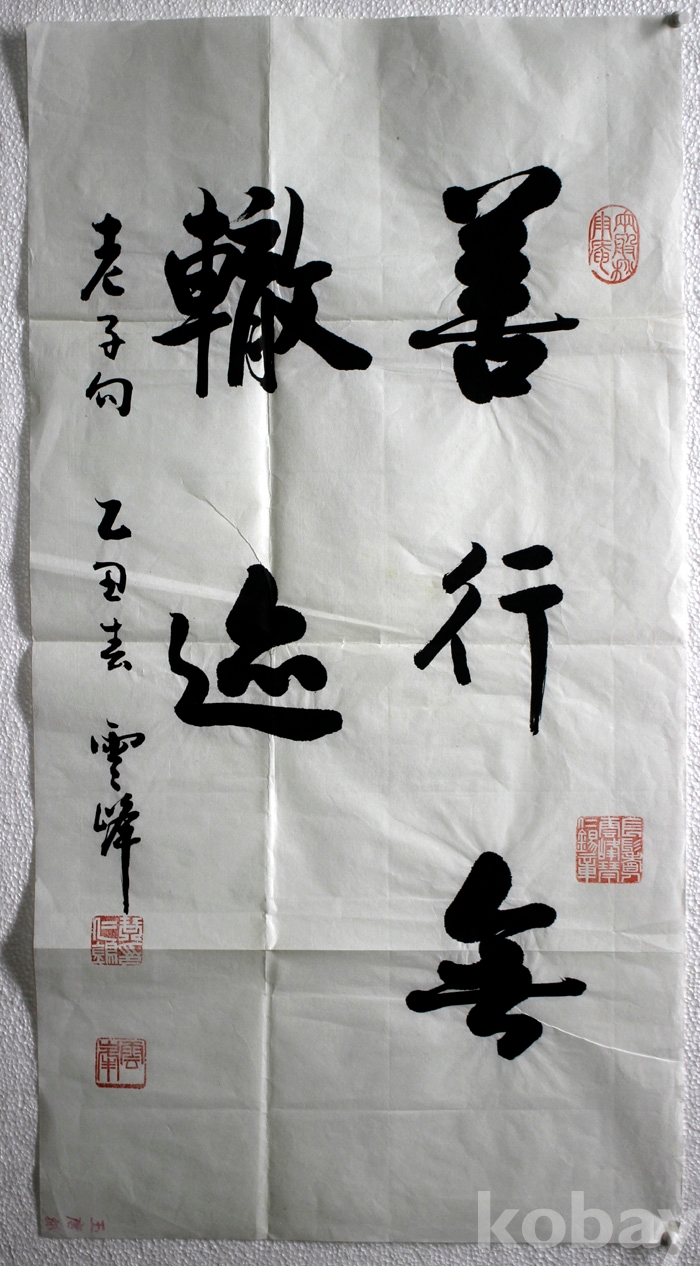 善行無
轍迹
老子句 乙丑春 雲峰
kobay